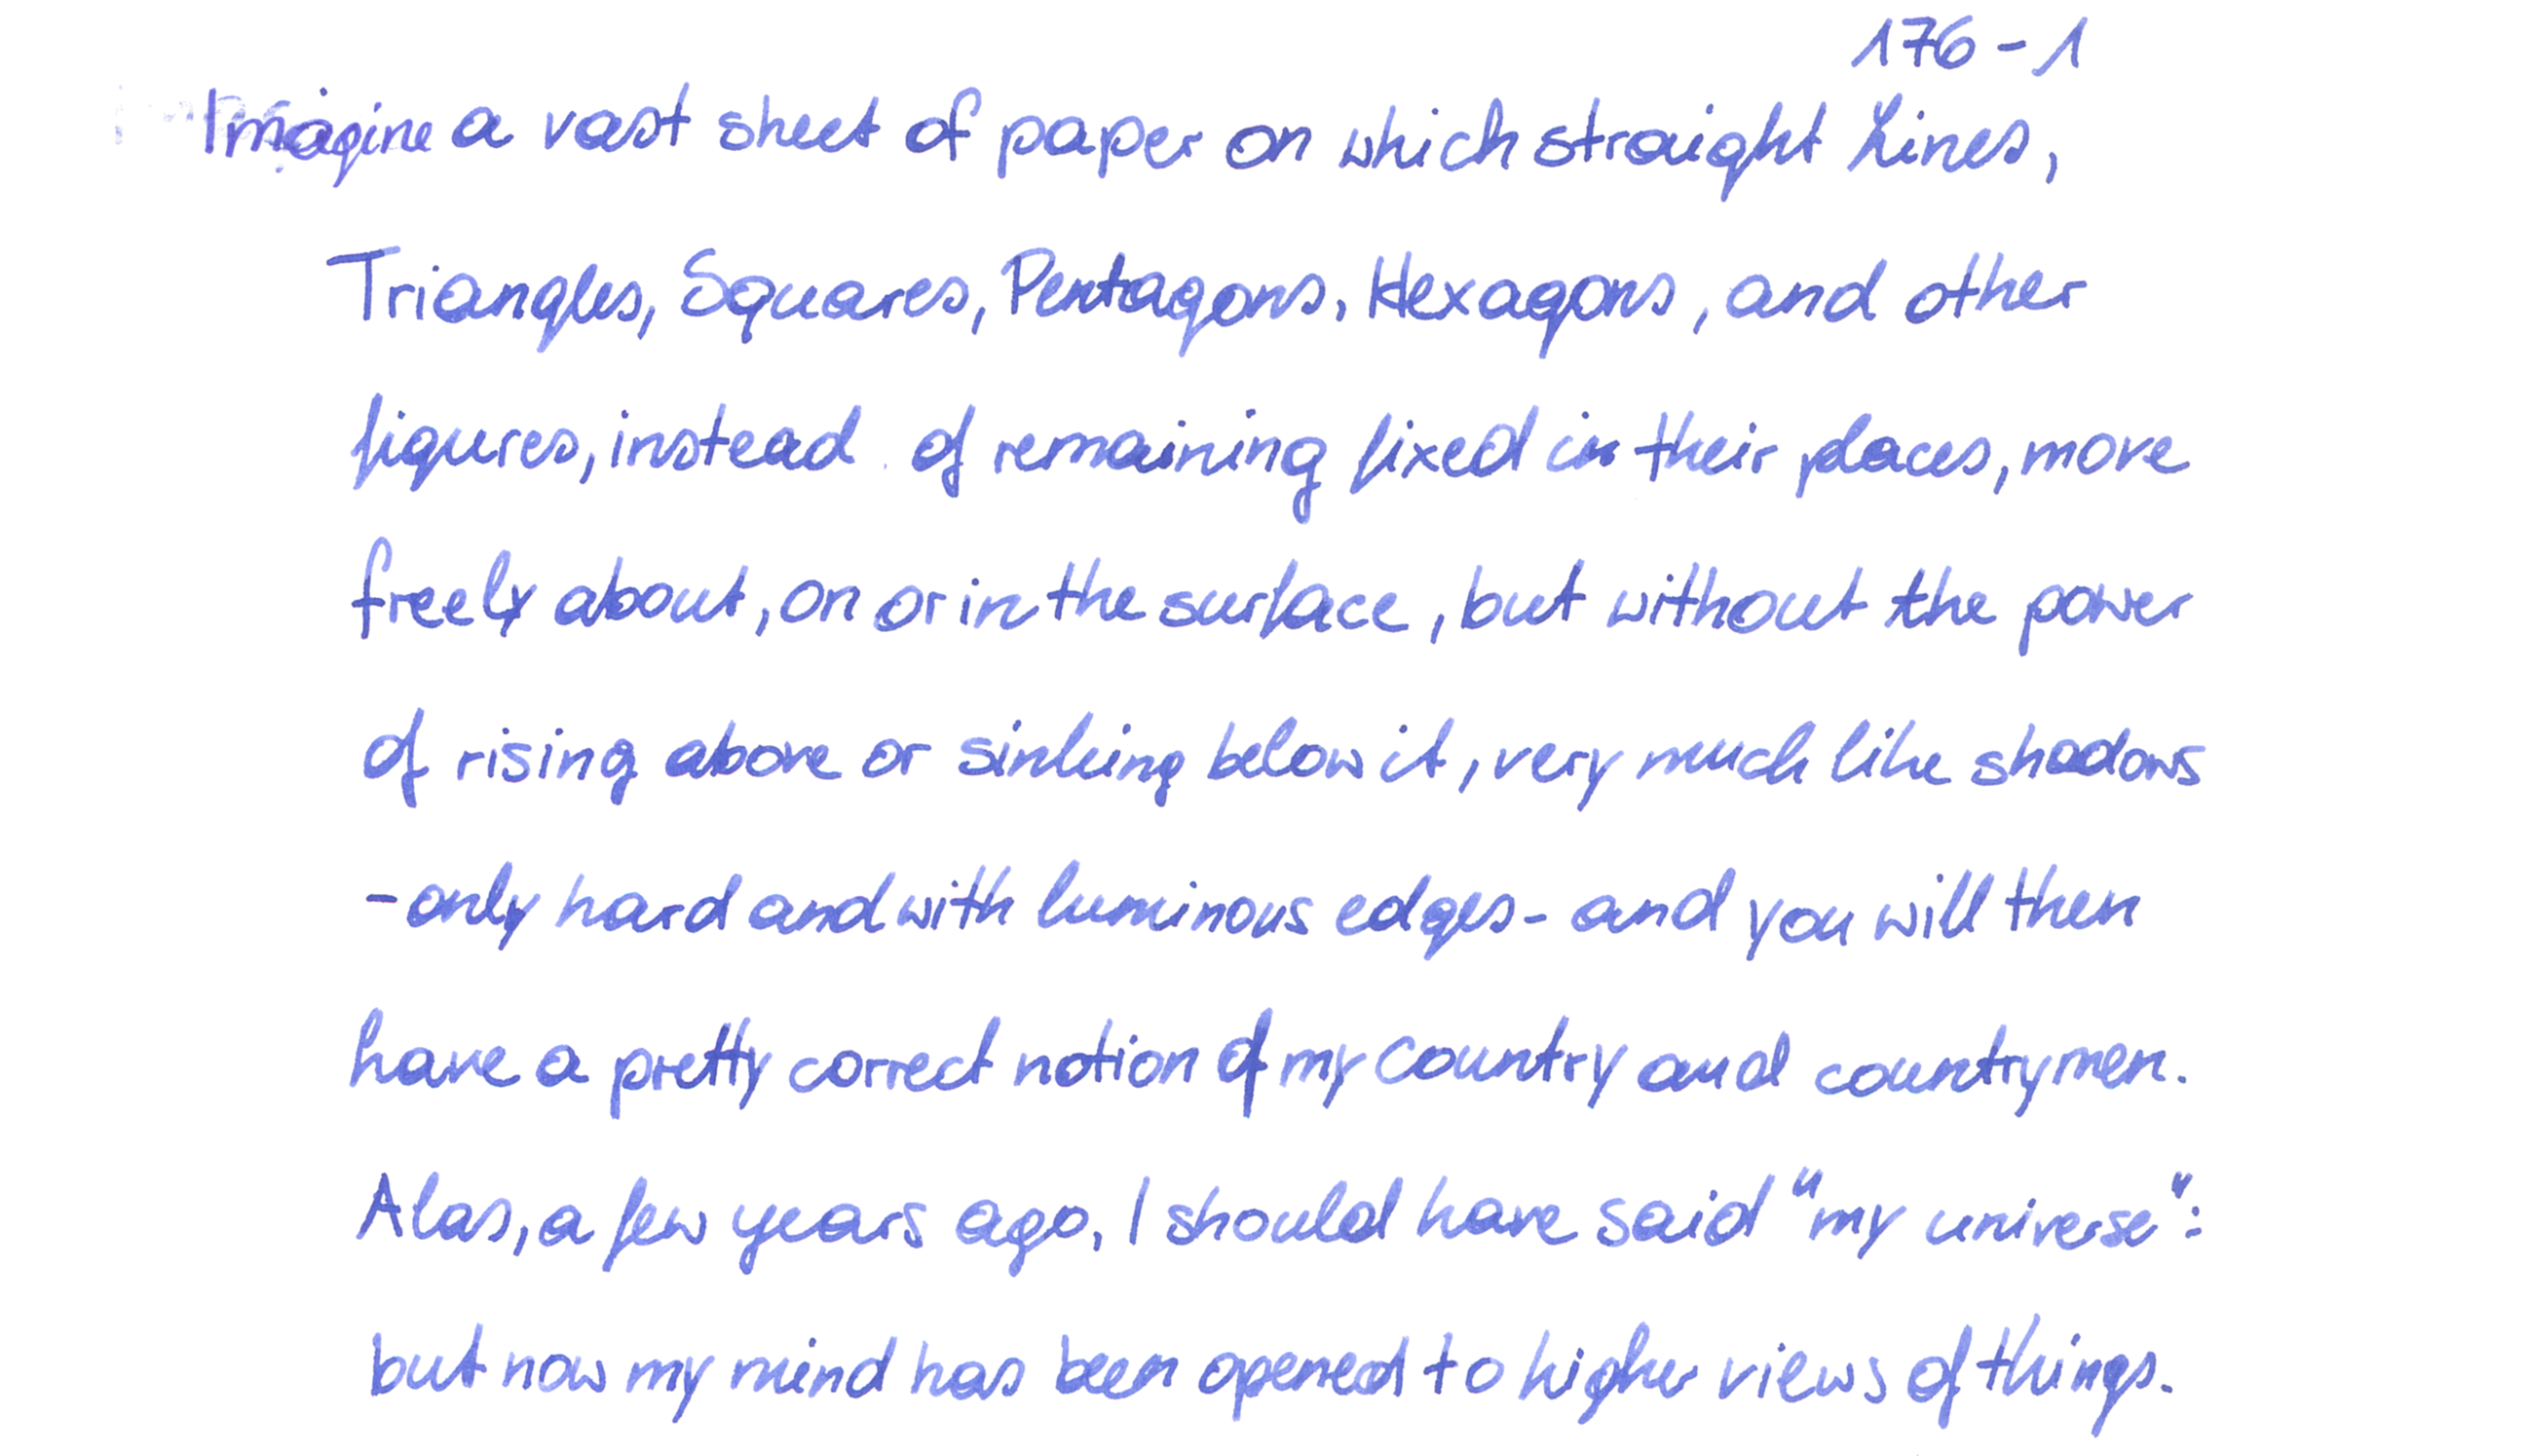 176-1
Imagine a vast sheet of paper on which straight Lines,
Triangles, Squares, Pentagons, Hexagons, and other
figures, instead of remaining fixed in their places, move
freely about, on or in the surface, but without the power
of rising above or sinking below it, very much like shadows
-only hard and with luminous edges- and you will then
have a pretty correct notion of my country and countrymen.
Alas, a few years ago, I should have said "my universe":
but now my mind has been opened to higher views of things.